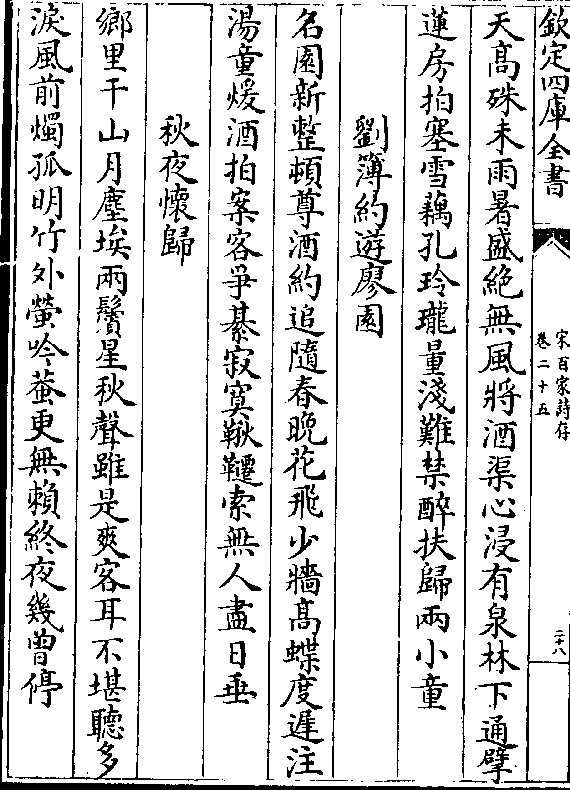 欽定四庫全書
宋百家詩存
卷二十五
二十八
天髙殊未雨暑盛絶無風將酒渠心浸有泉林下通擘
蓮房拍塞雪藕孔玲瓏量淺難禁醉扶歸兩小童
劉簿約遊廖園
名園新整頓尊酒約追隨春晚花飛少牆髙蝶度遲注
湯童煖酒拍案客爭棊寂寞鞦韆索無人盡日垂
秋夜懷歸
鄉里千山月塵埃兩鬢星秋聲雖是爽客耳不堪聽多
淚風前燭孤明竹外螢吟蛩更無賴終夜幾曽停